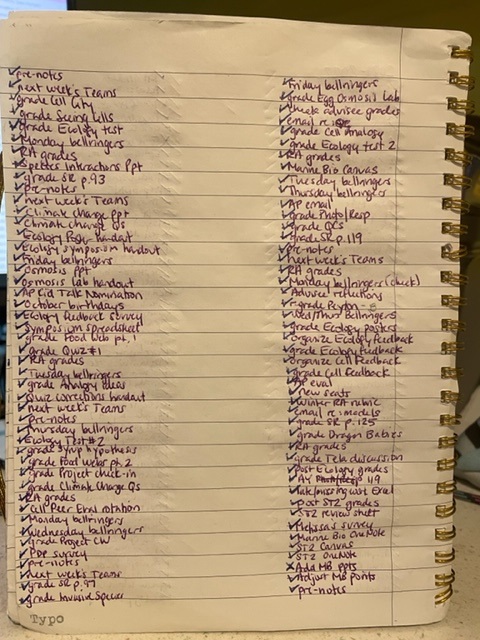 ✓pre-notes
✓next week's Teams
✓grade Cell City
✓grade Seeing Cells
✓grade Ecology test
✓Monday bellringers
✓RA grades
✓Species Interactions Ppt
✓grade SR p.93
✓pre-notes
✓next week's Teams
✓Climate Change Ppt
✓Climate Change Qs
✓Ecology Psey handout
✓Ecology Symposium handout
✓Friday bellringers
✓Osmosis Ppt
✓Osmosis Lab handout
✓AP Kid Talk Nomination
✓October birthdays
✓Ecology feedback survey
✓Symposium spreadsheet
✓grade Food Web pt. 1
✓grade Quiz #1
✓RA grades
✓Tuesday bellringers
✓grade Analogy ideas
✓Quiz corrections handout
✓next week's Teams
✓pre-notes
✓Thursday bellringers
✓Ecology Test #2
✓grade syrup hypothesis
✓grade food webs pt. 2
✓grade Project check-in
✓grade Climate Change Qs
✓RA grades
✓Cell Peer Eval rotation
✓Monday bellringers
✓Wednesday bellringers
✓grade Project CW
✓Pop survey
✓pre-notes
✓next week's Teams
✓grade SR p.97
✓grade Invasive Species
✓Friday bellringers
✓grade Egg Osmosis Lab
✓check advisee grades
✓email re:
✓grade Cell Analogy
✓grade Ecology test 2
✓RA grades
✓Marine Bio Canvas
✓Tuesday bellringers
✓Thursday bellringers
✓AP email
✓grade Photo/Resp
✓grade QCs
✓grade SR p.119
✓pre-notes
✓next week's Teams
✓RA grades
✓Monday bellringers (check)
✓Advisee reflections
✓grade Peyton
✓Wed/Thur bellringers
✓grade Ecology posters
✓organize Ecology feedback
✓grade Ecology feedback
✓organize Cell feedback
✓grade Cell feedback
✓AP eval
✓new seats
✓Winter RA rubric
✓email re: models
✓grade SR p.125
✓grade Dragon Babies
✓RA grades
✓grade Tela discussion
✓post Ecology grades
✓AK 119
✓Talk/missing work Excel
✓post ST2 grades
✓ST2 review sheet
✓Melissa's survey
✓Marine Bio OneNote
✓ST2 Canvas
✓ST2 OneNote
✗Add MB ppts
✓Adjust MB points
✓pre-notes
Typo